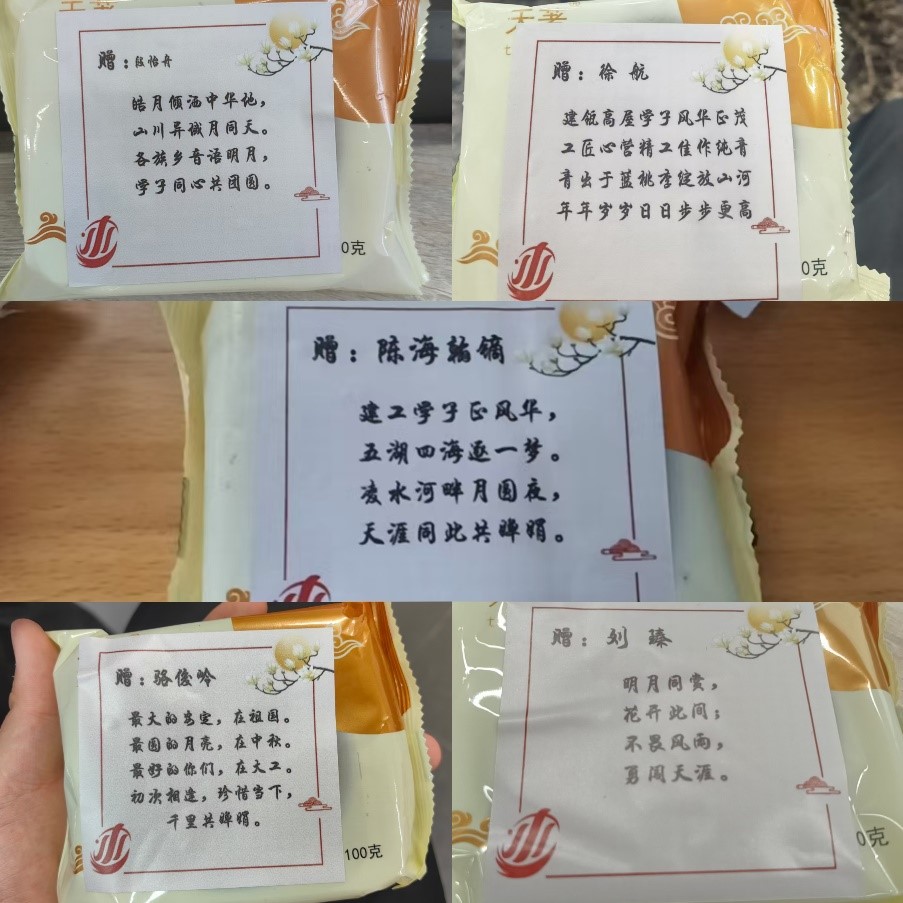 赠：段怡舟
皓月倾洒中华地，
山川异诚月同天。
各族乡音语明月，
学子同心共团圆。
0克
赠：徐航
建瓴高屋学子风华正茂
工匠心营精工佳作纯音
音出于蓝桃李绽放山河
年年岁岁日日步步更高
0克
赠：陈海翰镝
建工学子正风华，
五湖四海逐一梦。
凌水河畔月圆夜，
天涯同此共婵娟。
赠：骆俊吟
最大的安定，在祖国。
最圆的月亮，在中秋。
最好的你们，在大工。
初次相逢，珍惜当下，
千里共婵娟。
100克
赠：刘臻
明月同赏，
花开此间；
不畏风雨，
勇闯天涯。
0克